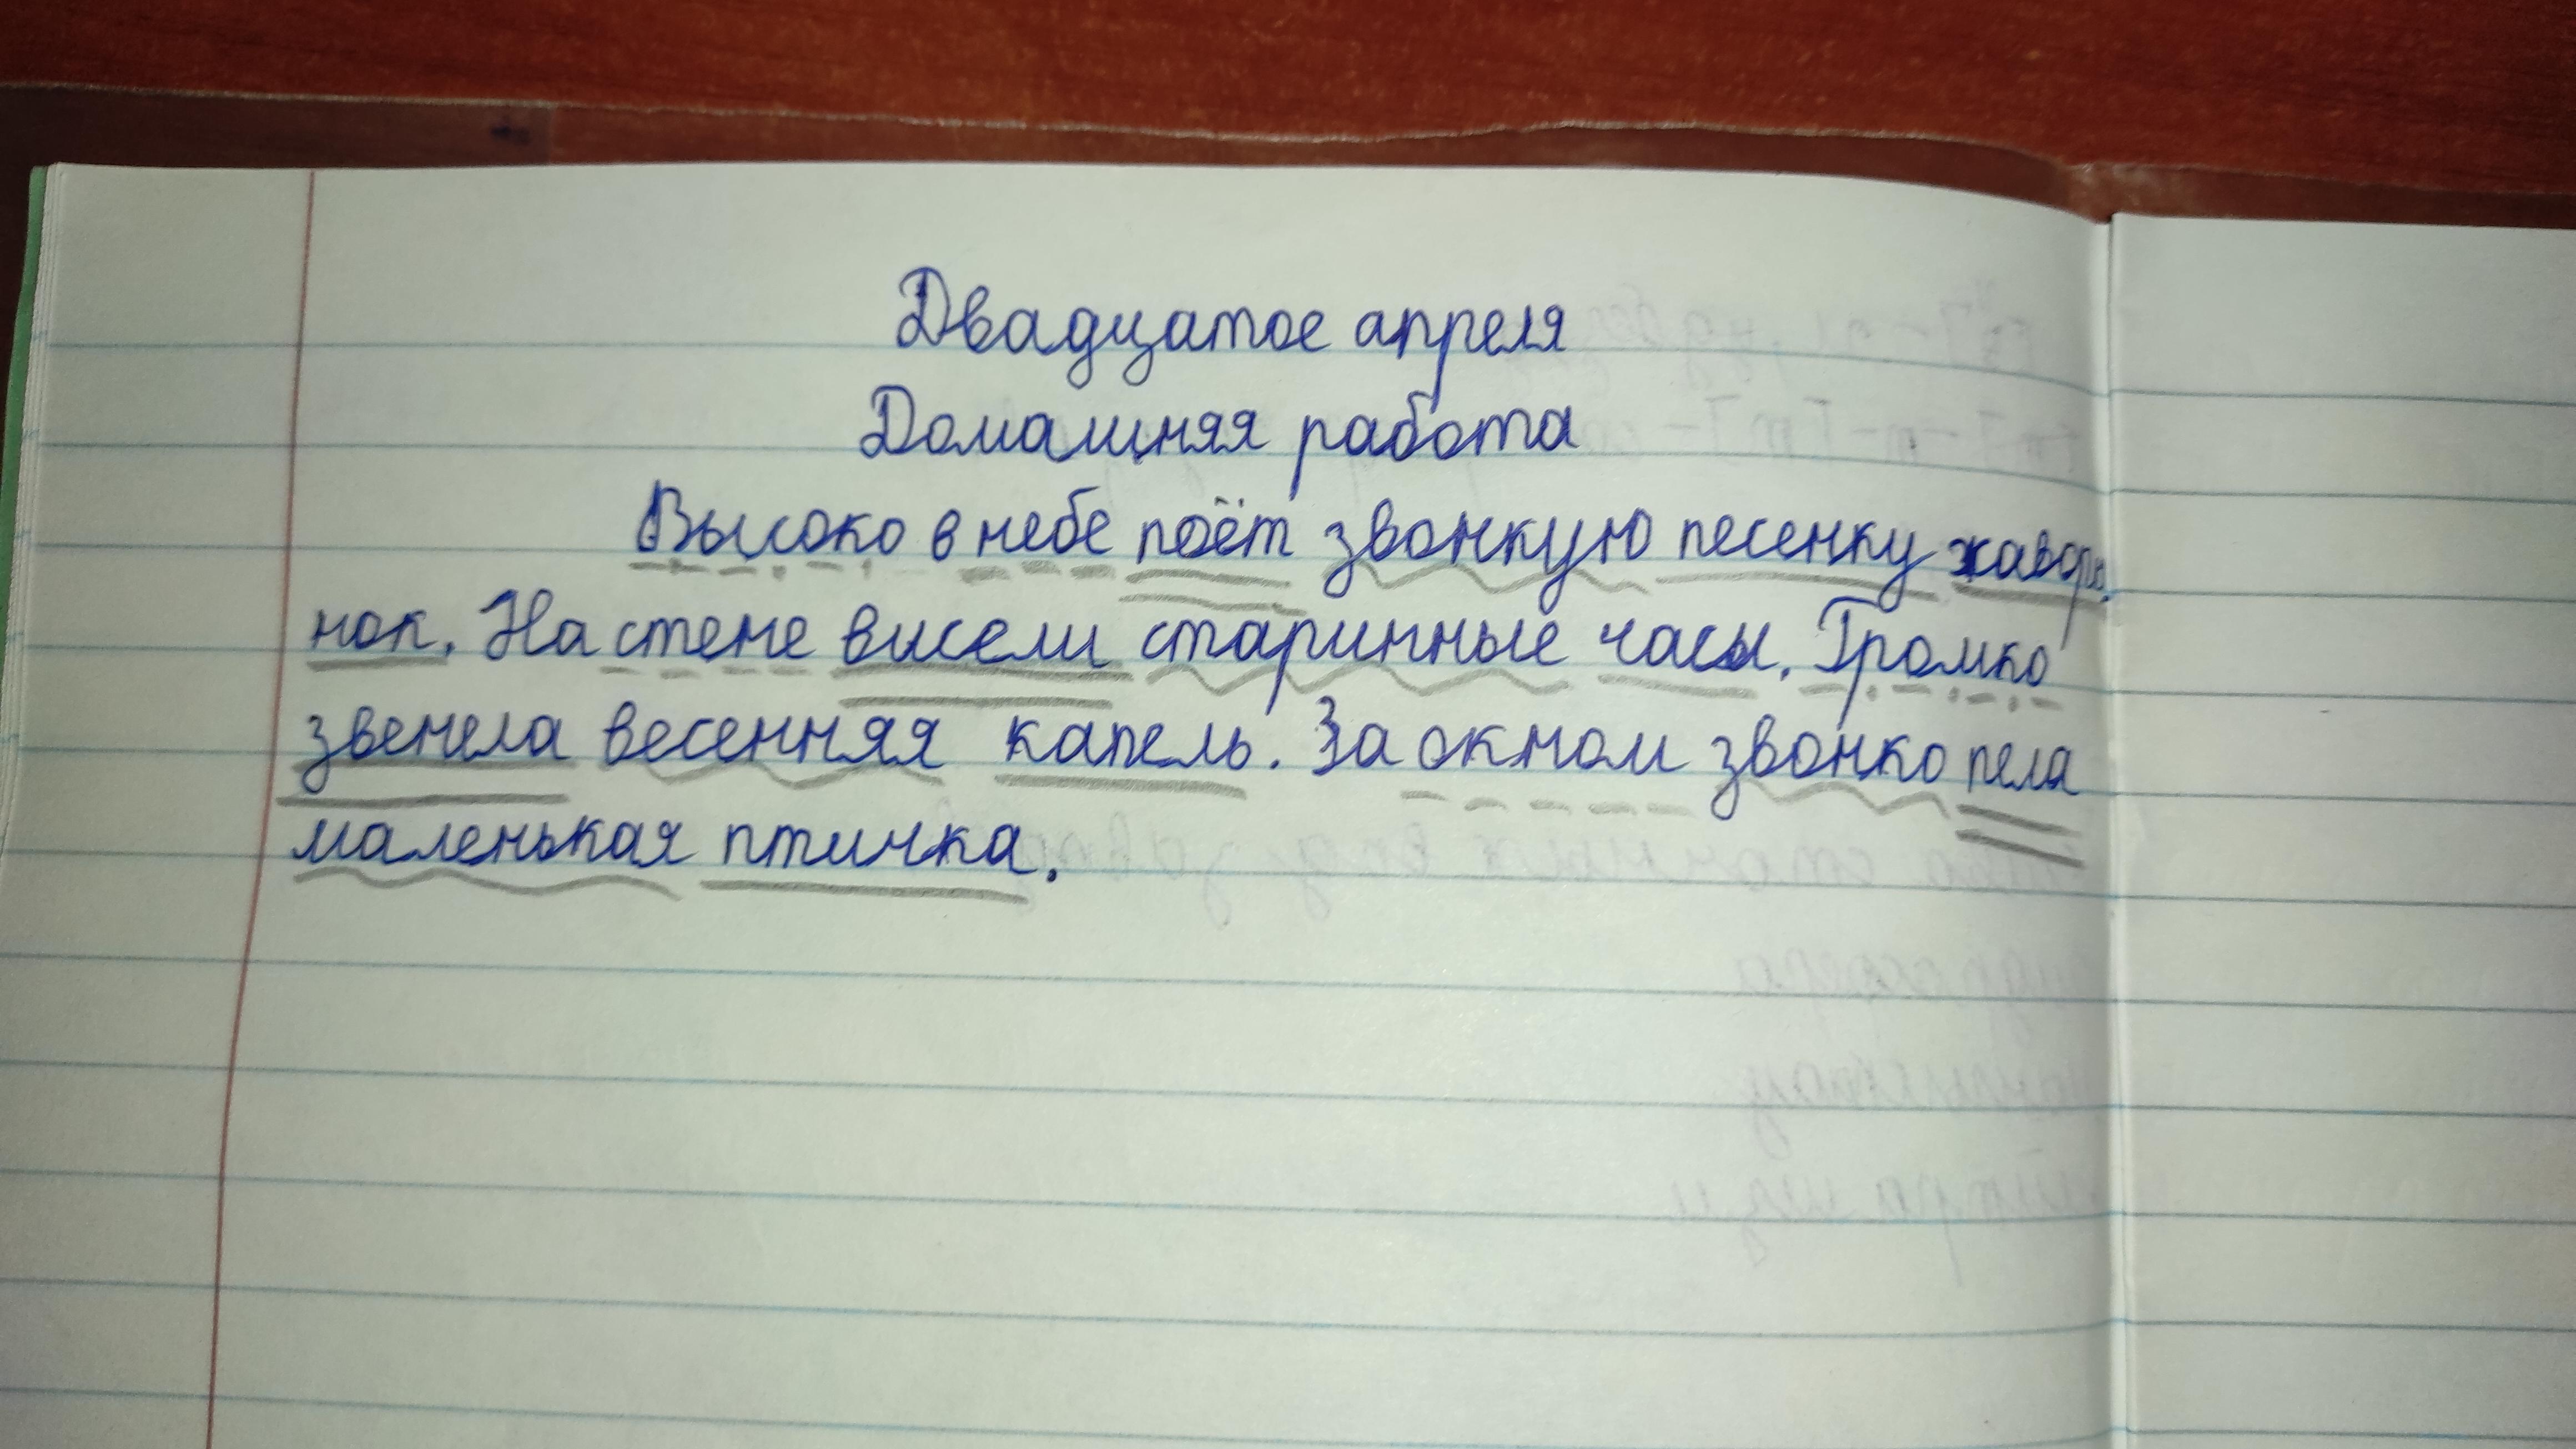 Двадцатое апреля
Домашняя работа
Высоко в небе поёт звонкую песенку жаворо-
нок. На стене висели старинные часы. Громко
звенела весенняя капель. За окном звонко пела
маленькая птичка.